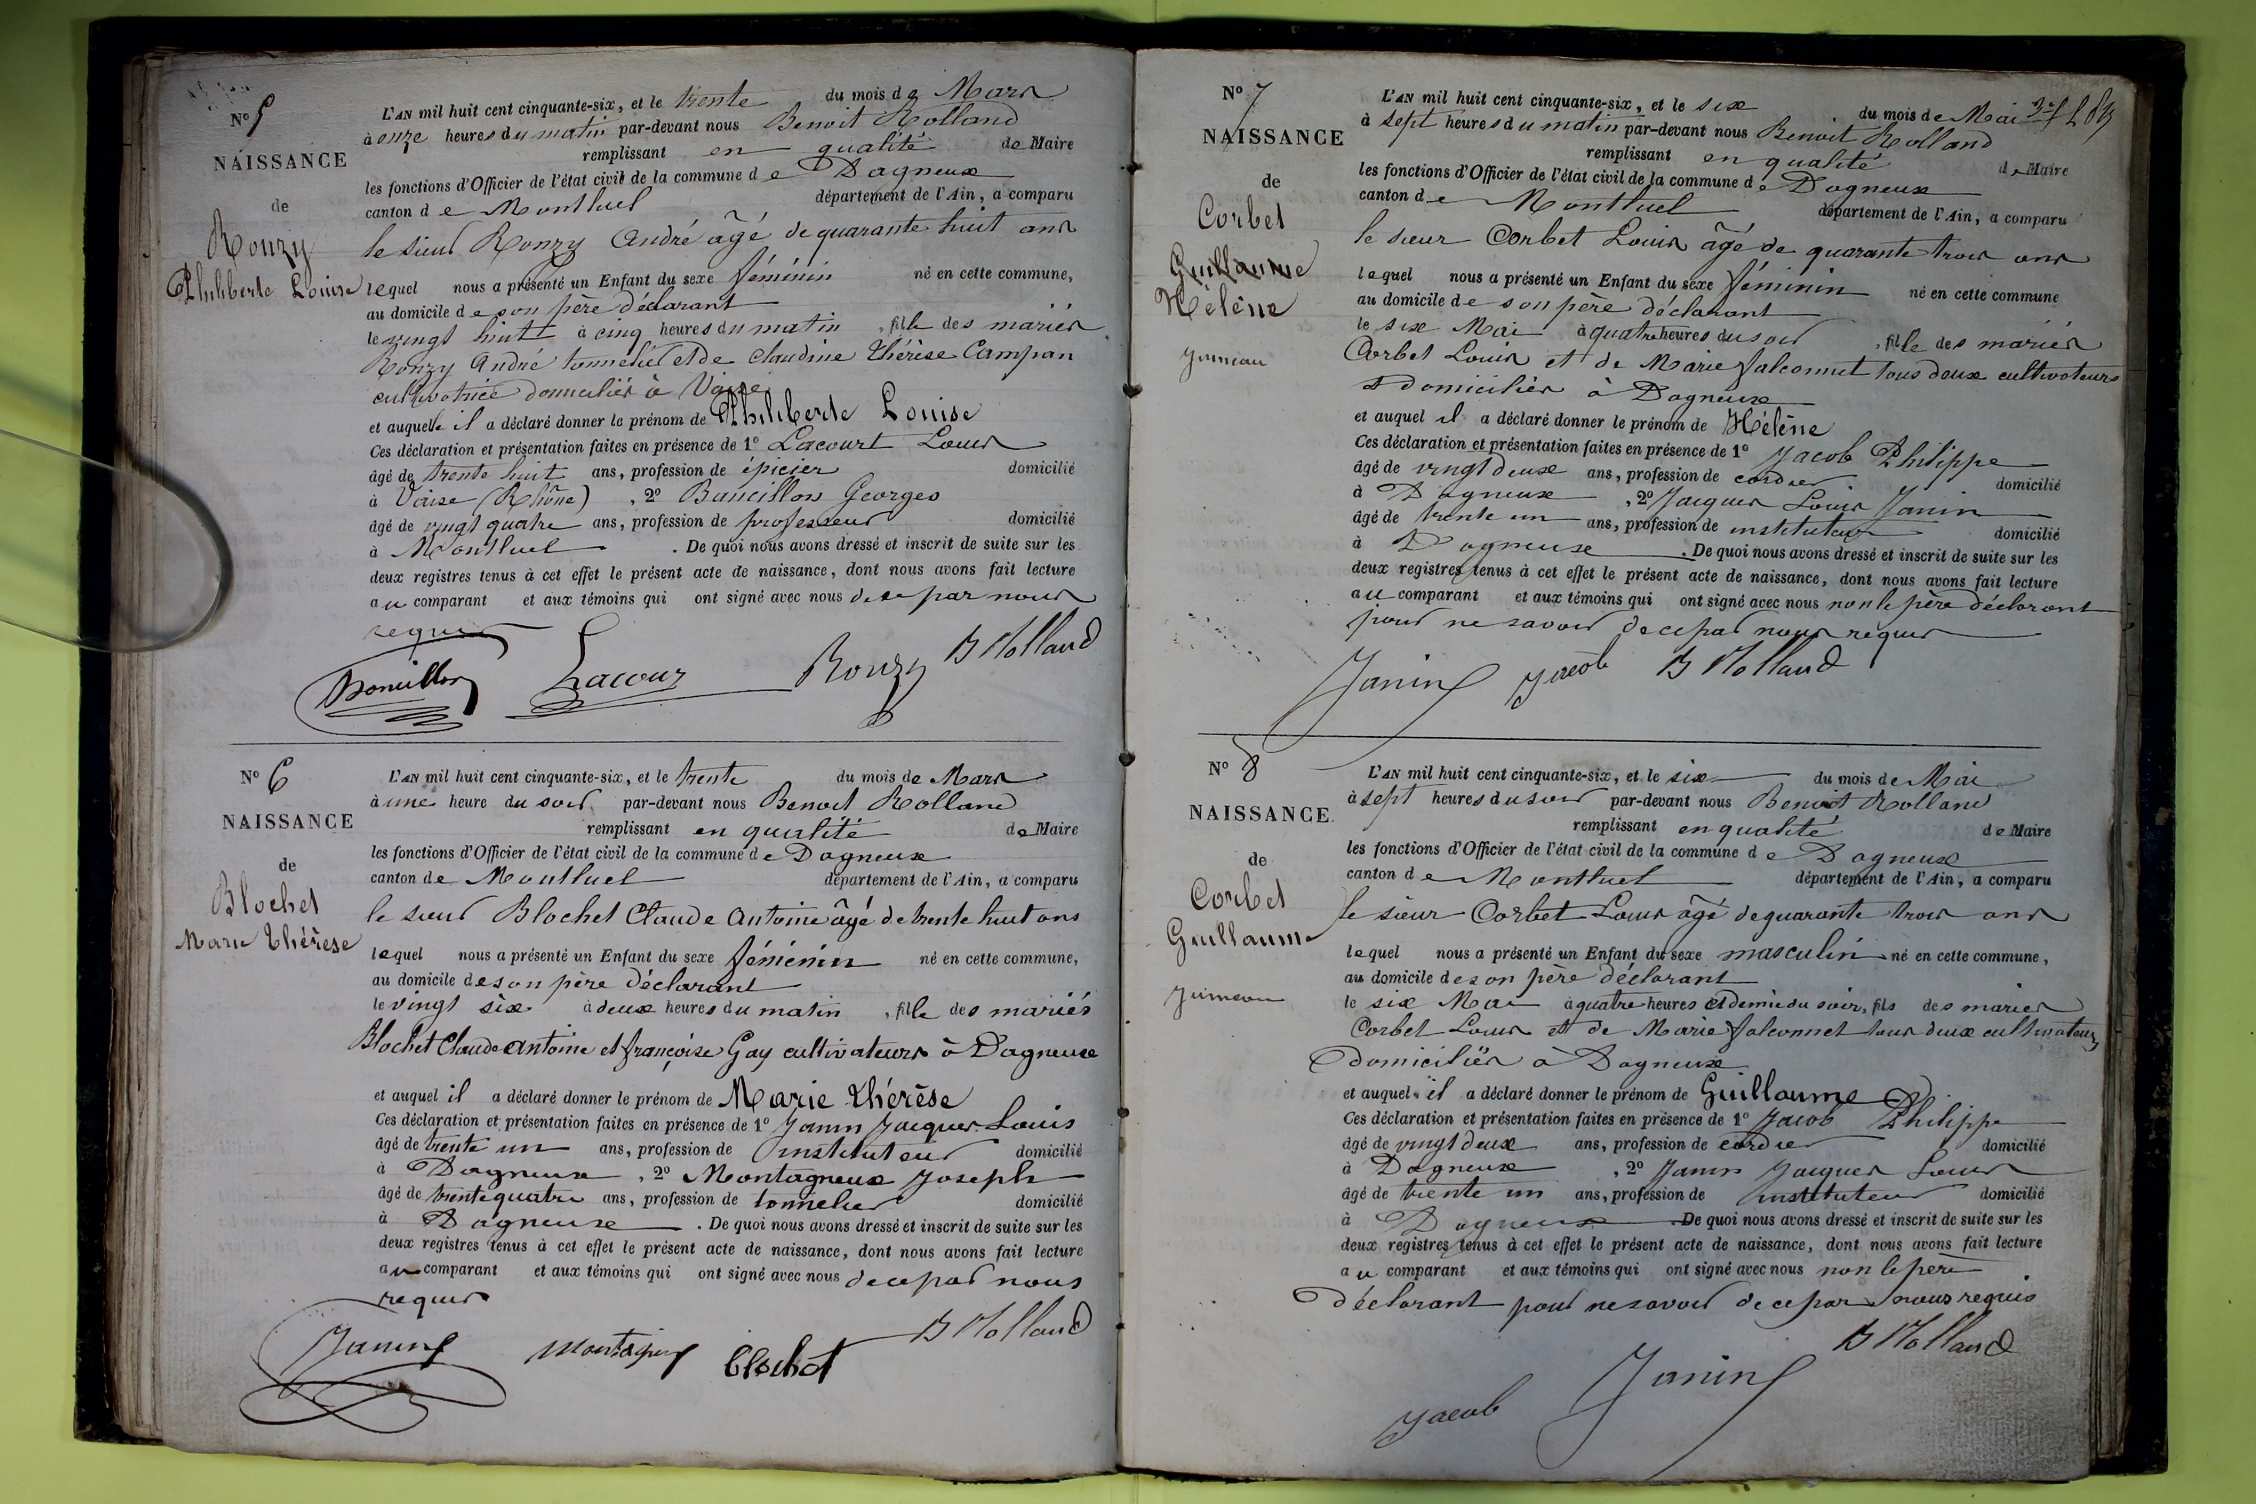 Nº 5
NAISSANCE
de
Rouzy
Philiberte Louise
L'AN mil huit cent cinquante-six, et le trente du mois de Mars
à onze heures du matin par-devant nous Benoit Rolland
remplissant en qualité de Maire
les fonctions d'Officier de l'état civil de la commune de Dagneux
canton de Montluel département de l'Ain, a comparu
le sieur Rouzy André âgé de quarante huit ans
lequel nous a présenté un Enfant du sexe féminin né en cette commune,
au domicile de son père déclarant
le vingt huit à cinq heures du matin, fille des mariés
Rouzy André tonnelier et de Claudine Thérèse Campan
cultivatrice domiciliés à Vaise
et auquel il a déclaré donner le prénom de Philiberte Louise
Ces déclaration et présentation faites en présence de 1º Lacourt Louis
âgé de trente huit ans, profession de épicier domicilié
à Vaise (Rhône), 2º Bancillon Georges
âgé de vingt quatre ans, profession de professeur domicilié
à Montluel. De quoi nous avons dressé et inscrit de suite sur les
deux registres tenus à cet effet le présent acte de naissance, dont nous avons fait lecture
au comparant et aux témoins qui ont signé avec nous de ce par nous
requis
Lacour Rouzy B Rolland
Nº 6
NAISSANCE
de
Blochet
Marie Thérèse
L'AN mil huit cent cinquante-six, et le trente du mois de Mars
à une heure du soir par-devant nous Benoit Rolland
remplissant en qualité de Maire
les fonctions d'Officier de l'état civil de la commune de Dagneux
canton de Montluel département de l'Ain, a comparu
le sieur Blochet Claude Antoine âgé de trente huit ans
lequel nous a présenté un Enfant du sexe féminin né en cette commune,
au domicile de son père déclarant
le vingt six à deux heures du matin, fille des mariés
Blochet Claude Antoine et françoise Gay cultivateurs à Dagneux
et auquel il a déclaré donner le prénom de Marie Thérèse
Ces déclaration et présentation faites en présence de 1º Janin Jacques Louis
âgé de trente un ans, profession de instituteur domicilié
à Dagneux, 2º Montagneux Joseph
âgé de trente quatre ans, profession de tonnelier domicilié
à Dagneux. De quoi nous avons dressé et inscrit de suite sur les
deux registres tenus à cet effet le présent acte de naissance, dont nous avons fait lecture
au comparant et aux témoins qui ont signé avec nous de ce par nous
requis
Janin Blochet B Rolland
Nº 7
NAISSANCE
de
Corbet
Guillaume
Hélène
jumeau
L'AN mil huit cent cinquante-six, et le six du mois de Mai
à sept heures du matin par-devant nous Benoit Rolland
remplissant en qualité de Maire
les fonctions d'Officier de l'état civil de la commune de Dagneux
canton de Montluel département de l'Ain, a comparu
le sieur Corbet Louis âgé de quarante trois ans
lequel nous a présenté un Enfant du sexe féminin né en cette commune
au domicile de son père déclarant
le six Mai à quatre heures du soir, fille des mariés
Corbet Louis et de Marie falconnet tous deux cultivateurs
domiciliés à Dagneux
et auquel il a déclaré donner le prénom de Hélène
Ces déclaration et présentation faites en présence de 1º Jacob Philippe
âgé de vingt deux ans, profession de cordier domicilié
à Dagneux, 2º Jacques Louis Janin
âgé de trente un ans, profession de instituteur domicilié
à Dagneux. De quoi nous avons dressé et inscrit de suite sur les
deux registres tenus à cet effet le présent acte de naissance, dont nous avons fait lecture
au comparant et aux témoins qui ont signé avec nous non le père déclarant
pour ne savoir de ce par nous requis
Janin Jacob B Rolland
Nº 8
NAISSANCE
de
Corbet
Guillaume
jumeau
L'AN mil huit cent cinquante-six, et le six du mois de Mai
à sept heures du soir par-devant nous Benoit Rolland
remplissant en qualité de Maire
les fonctions d'Officier de l'état civil de la commune de Dagneux
canton de Montluel département de l'Ain, a comparu
le sieur Corbet Louis âgé de quarante trois ans
lequel nous a présenté un Enfant du sexe masculin né en cette commune,
au domicile de son père déclarant
le six Mai à quatre heures et demie du soir, fils des mariés
Corbet Louis et de Marie falconnet tous deux cultivateurs
domiciliés à Dagneux
et auquel il a déclaré donner le prénom de Guillaume
Ces déclaration et présentation faites en présence de 1º Jacob Philippe
âgé de vingt deux ans, profession de cordier domicilié
à Dagneux, 2º Janin Jacques Louis
âgé de trente un ans, profession de instituteur domicilié
à Dagneux De quoi nous avons dressé et inscrit de suite sur les
deux registres tenus à cet effet le présent acte de naissance, dont nous avons fait lecture
au comparant et aux témoins qui ont signé avec nous non le père
déclarant pour ne savoir de ce par nous requis
Jacob Janin B Rolland